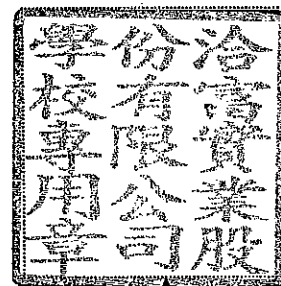 洽富實業股
份有限公司
學校專用章